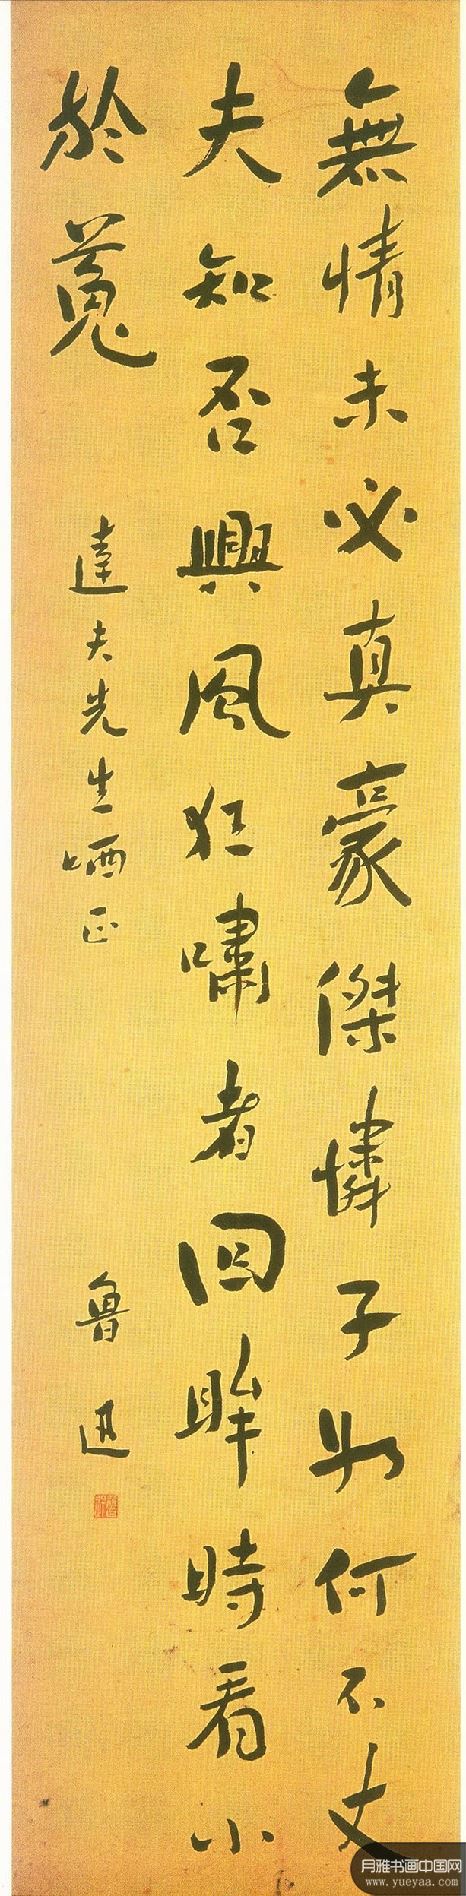 無情未必真豪傑憐子如何不丈
夫知否興風狂嘯者回眸時看小
於菟
達夫先生哂正
魯迅
月雅书画中国网
www.yueyaa.com